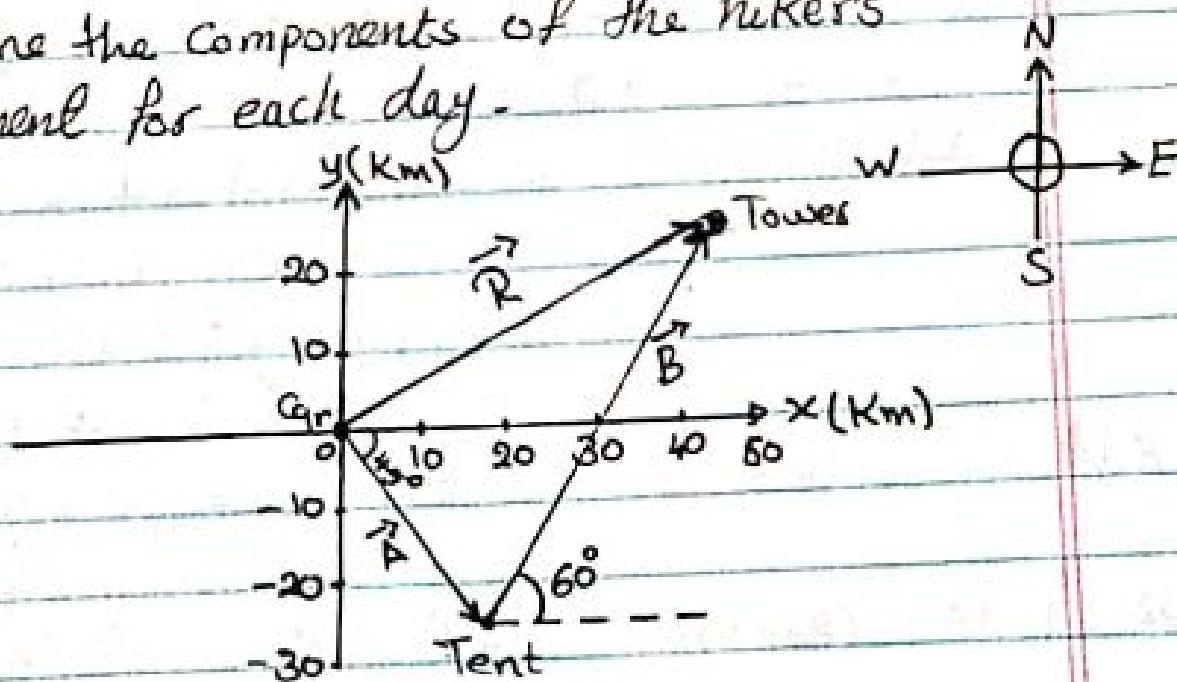 ne the components of the hikers
ment for each day.
N
y(Km)
W E
Tower
S
R
20
10
B
Car
X(Km)
0 10 20 30 40 50
45°
-10
A
-20
60°
-30
Tent